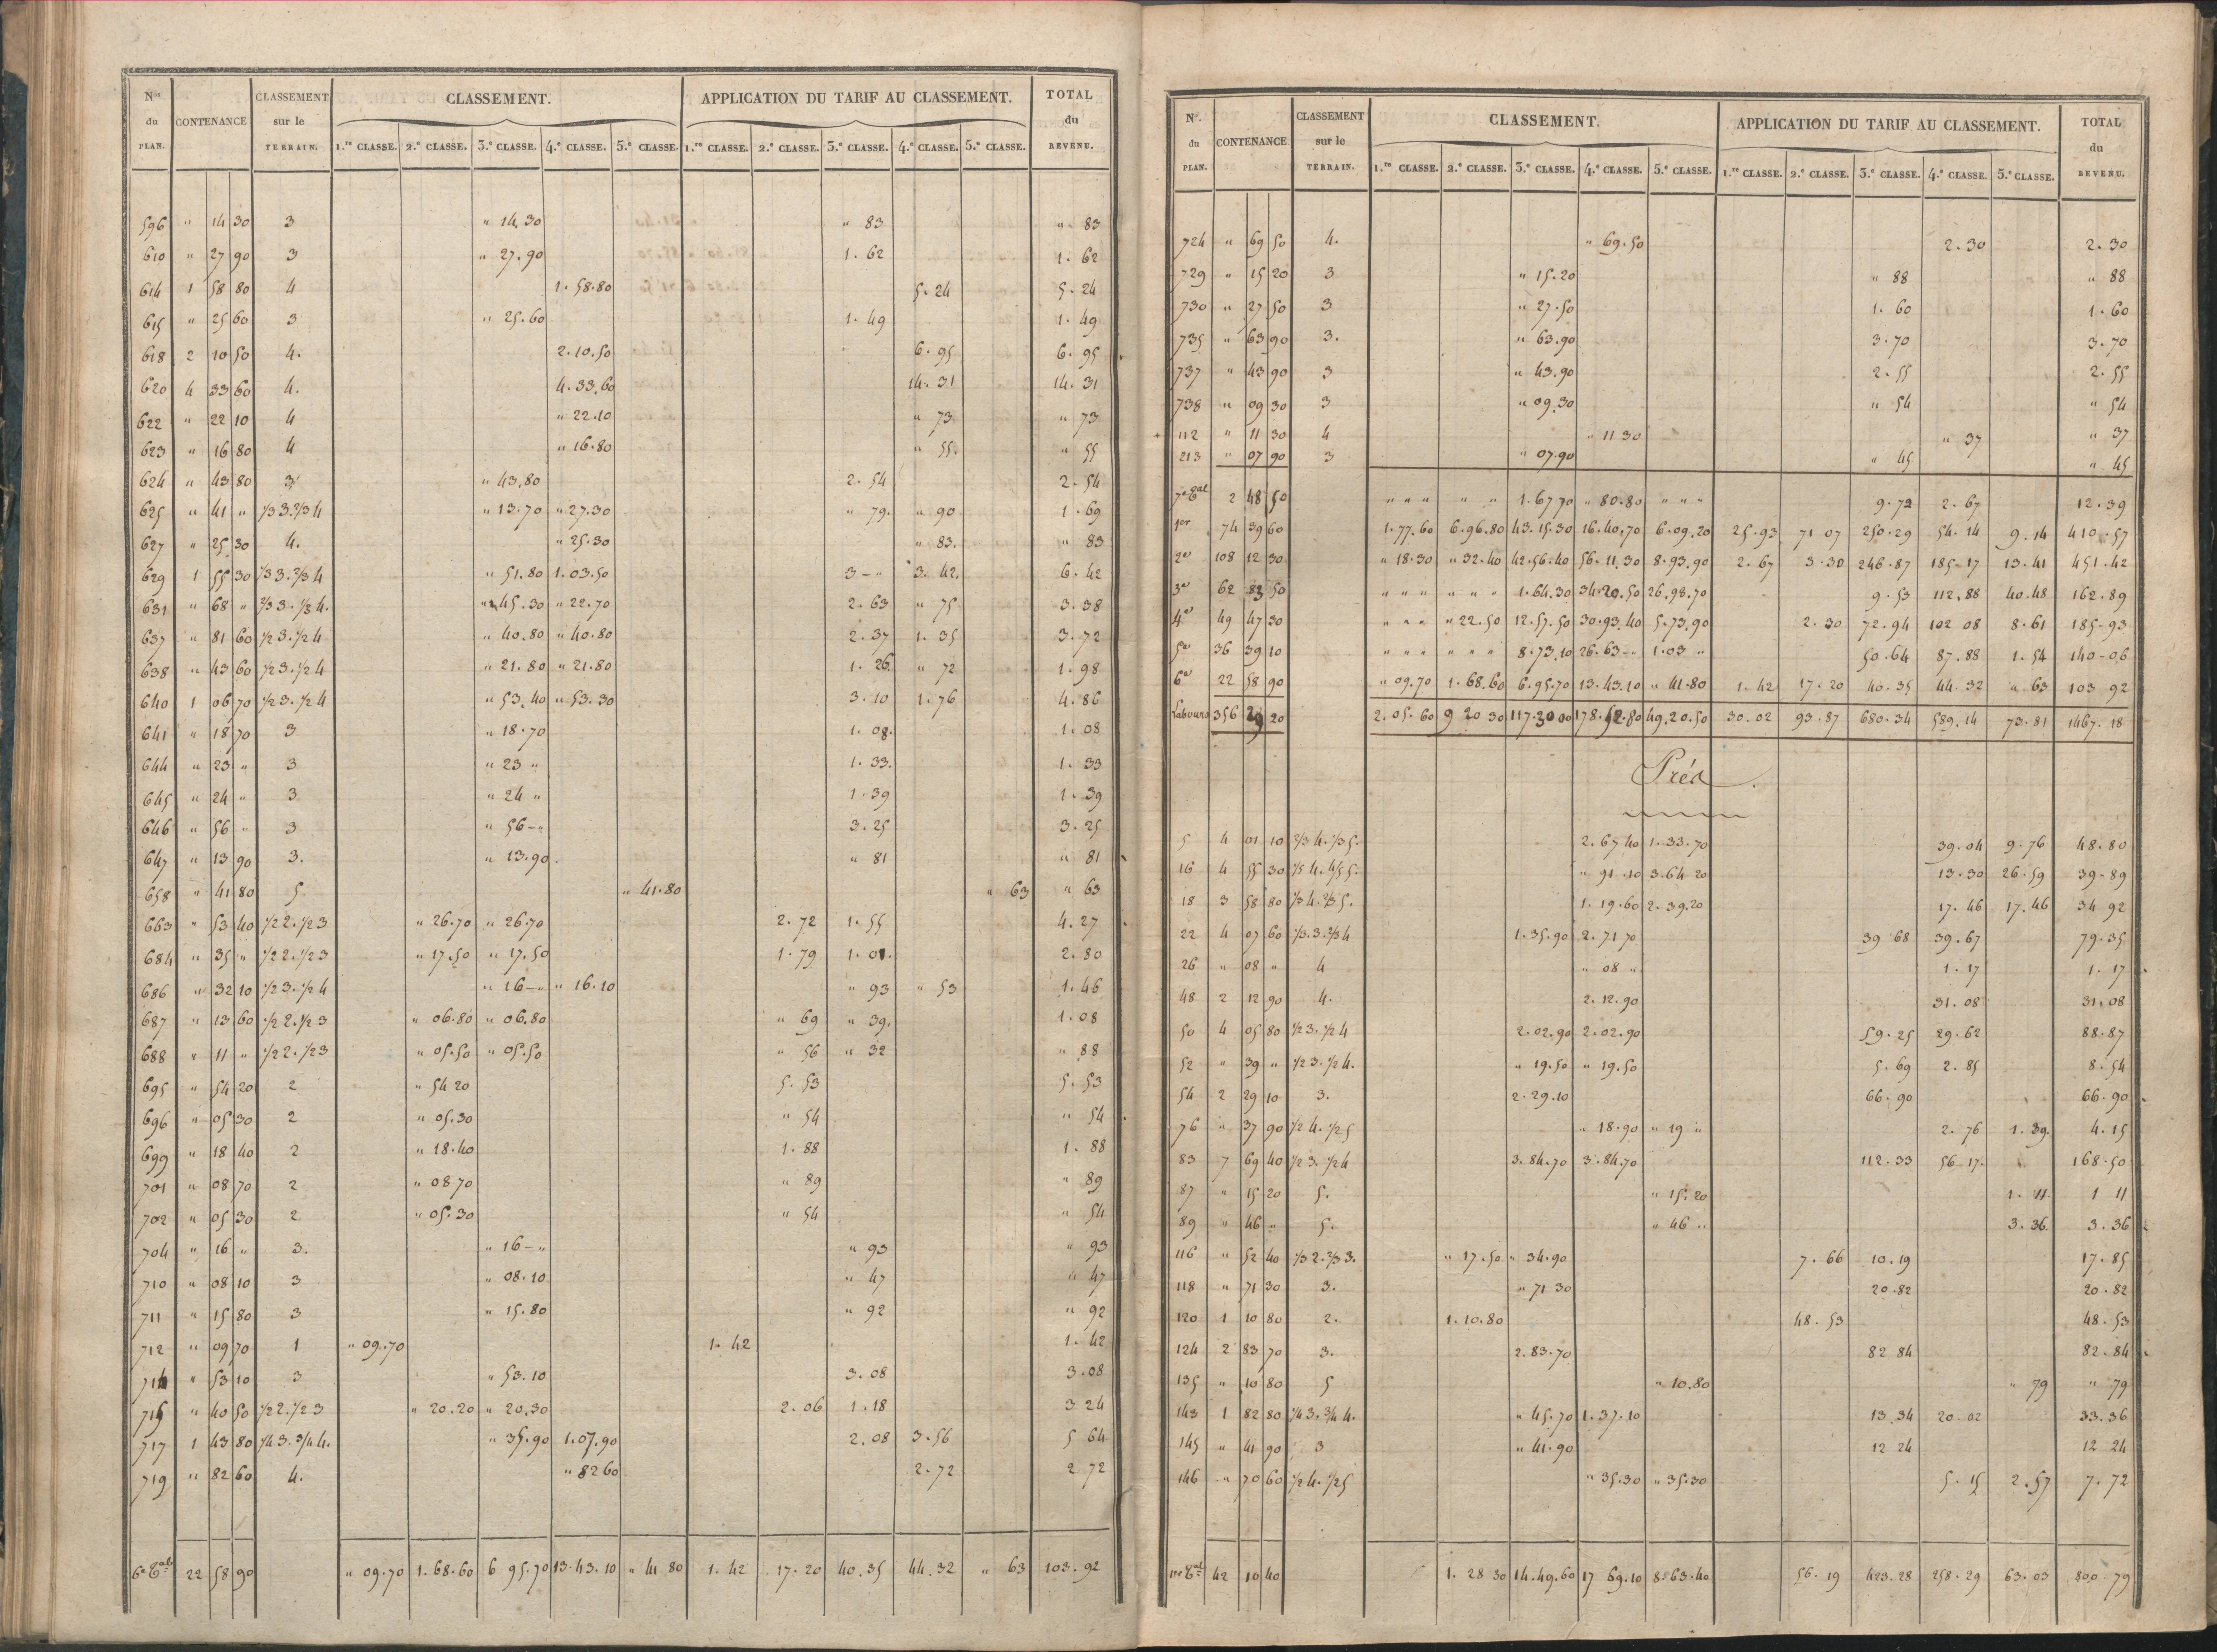 Nos du PLAN. CONTENANCE CLASSEMENT sur le TERRAIN. CLASSEMENT. APPLICATION DU TARIF AU CLASSEMENT. TOTAL du REVENU.
1.re CLASSE. 2.e CLASSE. 3.e CLASSE. 4.e CLASSE. 5.e CLASSE. 1.re CLASSE. 2.e CLASSE. 3.e CLASSE. 4.e CLASSE. 5.e CLASSE.
596 " 14 30 3 " 14.30 " 83 " 83
610 " 27 90 3 " 27.90 1. 62 1. 62
614 1 58 80 4 1. 58.80 5. 24 5. 24
615 " 25 60 3 " 25.60 1. 49 1. 49
618 2 10 50 4. 2.10.50 6. 95 6. 95
620 4 33 60 4. 4.33.60 14. 31 14. 31
622 " 22 10 4 " 22.10 " 73 " 73
623 " 16 80 4 " 16.80 " 55. " 55
624 " 43 80 3 " 43.80 2. 54 2. 54
625 " 41 " 1/3 3. 2/3 4 " 13.70 " 27.30 " 79. " 90 1. 69
627 " 25 30 4. " 25.30 " 83. " 83
629 1 55 30 1/3 3. 2/3 4 " 51.80 1.03.50 3 - " 3. 42. 6. 42
631 " 68 " 2/3 3. 1/3 4. " 45.30 " 22.70 2. 63 " 75 3. 38
637 " 81 60 1/2 3. 1/2 4 " 40.80 " 40.80 2. 37 1. 35 3. 72
638 " 43 60 1/2 3. 1/2 4 " 21.80 " 21.80 1. 26. " 72 1. 98
640 1 06 70 1/2 3. 1/2 4 " 53.40 " 53.30 3. 10 1. 76 4. 86
641 " 18 70 3 " 18.70 1. 08. 1. 08
644 " 23 " 3 " 23 " 1. 33. 1. 33
645 " 24 " 3 " 24 " 1. 39 1. 39
646 " 56 " 3 " 56 - " 3. 25 3. 25
647 " 13 90 3. " 13.90. " 81 " 81
658 " 41 80 5 " 41.80 " 63 " 63
663 " 53 40 1/2 2. 1/2 3 " 26.70 " 26.70 2. 72 1. 55 4. 27
684 " 35 " 1/2 2. 1/2 3 " 17.50 " 17.50 1. 79 1. 01. 2. 80
686 " 32 10 1/2 3. 1/2 4 " 16 - " " 16.10 " 93 " 53 1. 46
687 " 13 60 1/2 2. 1/2 3 " 06.80 " 06.80 " 69 " 39. 1. 08
688 " 11 " 1/2 2. 1/2 3 " 05.50 " 05.50 " 56 " 32 " 88
695 " 54 20 2 " 54 20 5. 53 5. 53
696 " 05 30 2 " 05.30 " 54 " 54
699 " 18 40 2 " 18.40 1. 88 1. 88
701 " 08 70 2 " 08 70 " 89 " 89
702 " 05 30 2 " 05.30 " 54 " 54
704 " 16 " 3. " 16 - " " 93 " 93
710 " 08 10 3 " 08.10 " 47 " 47
711 " 15 80 3 " 15.80 " 92 " 92
712 " 09 70 1 " 09.70 1. 42 1. 42
714 " 53 10 3 " 53.10 3. 08 3.08
715 " 40 50 1/2 2. 1/2 3 " 20.20 " 20.30 2. 06 1. 18 3 24
717 1 43 80 1/4 3. 3/4 4. " 35.90 1.07.90 2. 08 3.56 5 64
719 " 82 60 4. " 82 60 2. 72 2 72
6e tal 22 58 90 " 09.70 1. 68.60 6 95.70 13.43.10 " 41 80 1. 42 17. 20 40.35 44.32 " 63 103. 92
No. du PLAN. CONTENANCE CLASSEMENT sur le TERRAIN. CLASSEMENT. APPLICATION DU TARIF AU CLASSEMENT. TOTAL du REVENU.
1.re CLASSE. 2.e CLASSE. 3.e CLASSE. 4.e CLASSE. 5.e CLASSE. 1.re CLASSE. 2.e CLASSE. 3.e CLASSE. 4.e CLASSE. 5.e CLASSE.
724 " 69 50 4. " 69.50 2. 30 2. 30
729 " 15 20 3 " 15.20 " 88 " 88
730 " 27 50 3 " 27.50 1. 60 1. 60
735 " 63 90 3. " 63.90 3. 70 3. 70
737 " 43 90 3 " 43.90 2. 55 2. 55
738 " 09 30 3 " 09.30 " 54 " 54
+ 112 " 11 30 4 " 11 30 " 37 " 37
213 " 07 90 3 " 07.90 " 45 " 45
7e tal 2 48 50 " " " " " 1. 67 70 " 80.80 " " " 9. 72 2. 67 12.39
1er 74 39 60 1.77.60 6.96.80 43.15.30 16.40.70 6.09.20 25.93 71 07 250.29 54.14 9.14 410.57
2e 108 12 30 " 18.30 " 32.40 42.56.40 56.11.30 8.93.90 2. 67 3.30 246.87 185.17 13.41 451.42
3e 62 83 50 " " " " " " 1.64.30 34.20.50 26.98.70 9.53 112.88 40.48 162.89
4e 49 47 30 " " " " 22.50 12.57.50 30.93.40 5.73.90 2. 30 72.94 102 08 8.61 185-93
5e 36 39 10 " " " " " " 8.73.10 26.63 - " 1.03 " 50.64 87.88 1.54 140-06
6e 22 58 90 " 09.70 1.68.60 6.95.70 13.43.10 " 41.80 1.42 17.20 40.35 44.32 " 63 103 92
Labours 356 29 20 2.05.60 9 20 30 117.30 00 178.52.80 49.20.50 30.02 93.87 680.34 589.14 73.81 1467.18
Prés
5 4 01 10 2/3 4. 1/3 5. 2. 67 40 1.33.70 39.04 9.76 48.80
16 4 55 30 1/5 4. 4/5 5. " 91.10 3.64 20 13.30 26.59 39-89
18 3 58 80 1/3 4. 2/3 5. 1.19.60 2.39.20 17.46 17.46 34 92
22 4 07 60 1/3. 3. 2/3 4 1.35.90 2.71 70 39 68 39.67 79.35
26 " 08 " 4 " 08 " 1.17 1.17
48 2 12 90 4. 2.12.90 31.08 31.08
50 4 05 80 1/2 3. 1/2 4 2.02.90 2.02.90 59.25 29.62 88.87
52 " 39 " 1/2 3. 1/2 4. " 19.50 " 19.50 5.69 2.85 8.54
54 2 29 10 3. 2.29.10 66.90 66.90
76 " 37 90 1/2 4. 1/2 5 " 18.90 " 19 " 2.76 1.39. 4.15
83 7 69 40 1/2 3. 1/2 4 3.84.70 3.84.70 112.33 56-17. 168.50
87 " 15 20 5. " 15.20 1.11 1 11
89 " 46 " 5. " 46 " 3.36. 3.36
116 " 52 40 1/3 2. 2/3 3. " 17.50 " 34.90 7.66 10.19 17.85
118 " 71 30 3. " 71 30 20.82 20.82
120 1 10 80 2. 1.10.80 48.53 48.53
124 2 83 70 3. 2.83.70 82 84 82.84
135 " 10 80 5 " 10.80 " 79 " 79
143 1 82 80 1/4 3. 3/4 4. " 45.70 1.37.10 13.34 20.02 33.36
145 " 41 90 3 " 41.90 12 24 12 24
146 " 70 60 1/2 4. 1/2 5 " 35.30 " 35.30 5.15 2.57 7.72
1re tal 42 10 40 1. 28 30 14.49.60 17 69.10 8 63.40 56.19 423.28 258.29 63.03 800.79